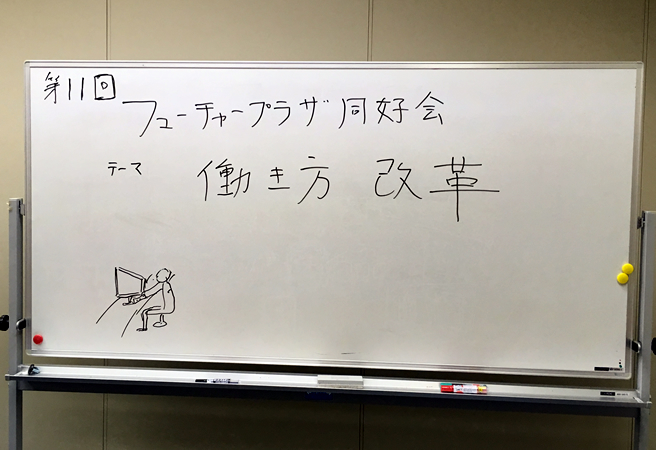 第11回
フューチャープラザ同好会
テーマ 働き方 改革